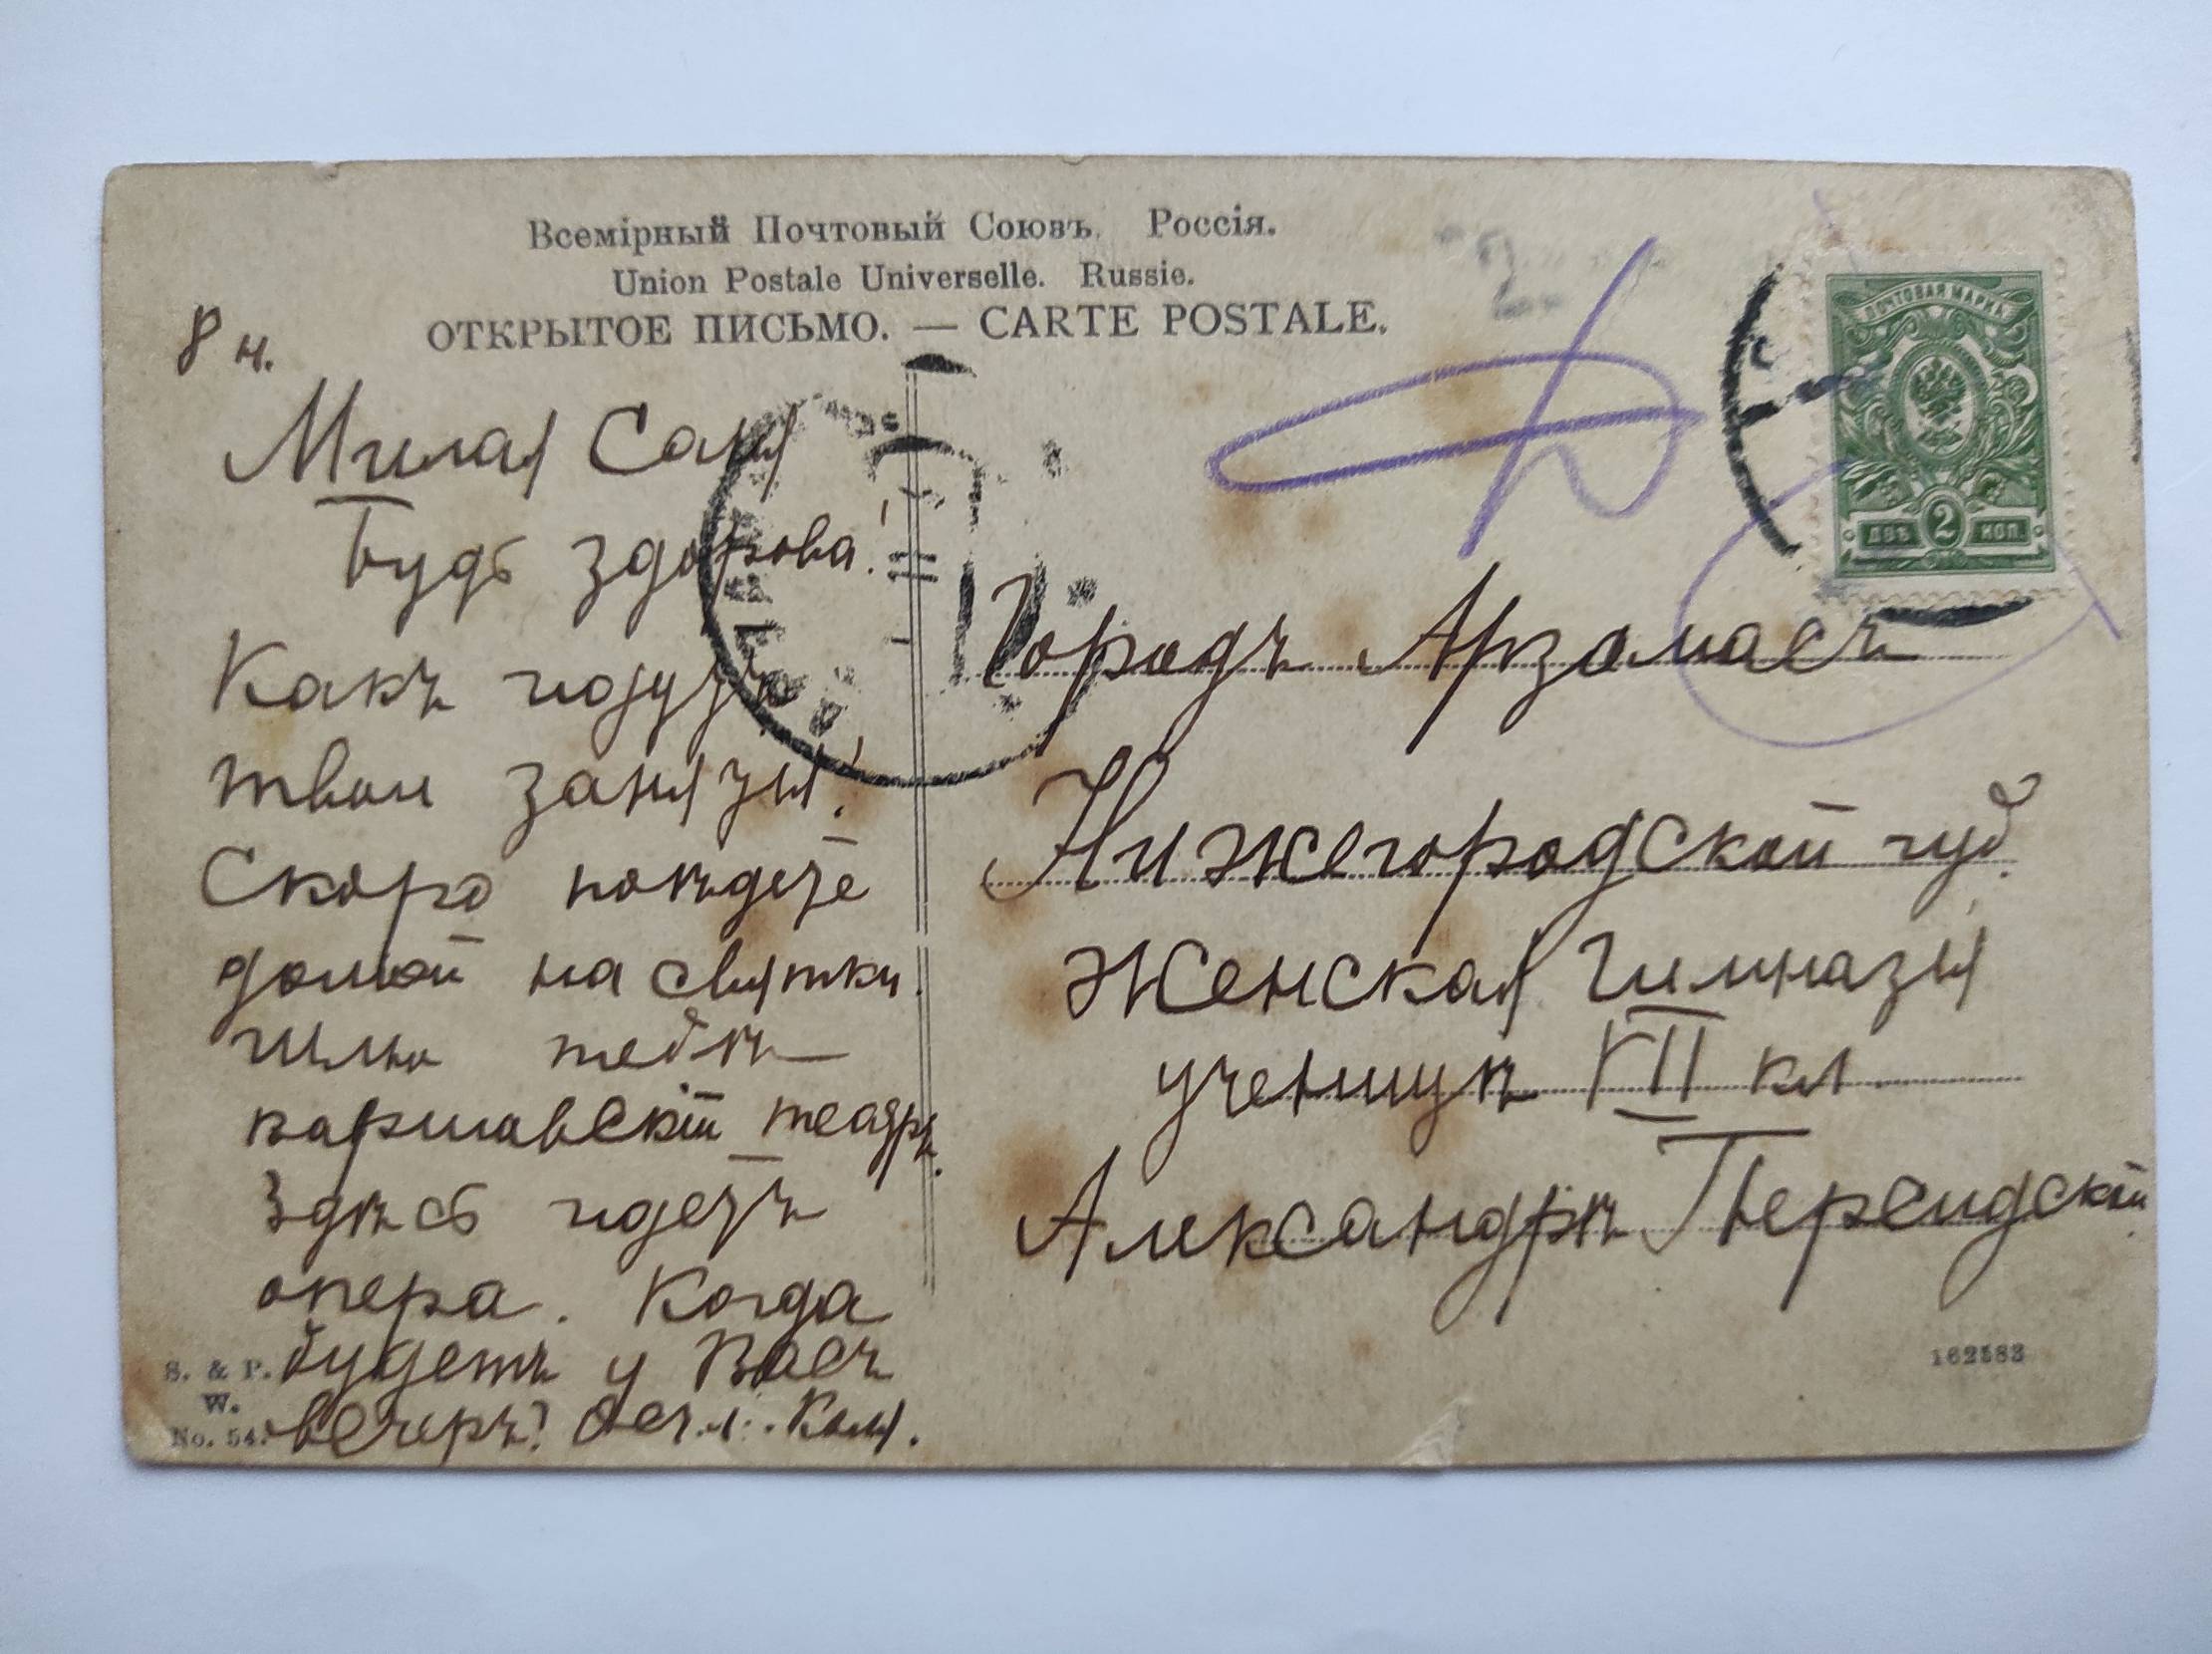 Всемірный Почтовый Союзъ. Россія.
Union Postale Universelle. Russie.
ОТКРЫТОЕ ПИСЬМО. — CARTE POSTALE.
8 н.
Милая Саня
Будь здорова!
Какъ идутъ
твои занятія!
Скоро поѣдете
домой на святки.
Шлю тебѣ
варшавскій театръ.
Здѣсь идетъ
опера. Когда
будетъ у Васъ
вечеръ?
ПОЧТОВАЯ МАРКА
ДВѢ 2 КОП.
Городъ Арзамасъ
Нижегородской губ.
Женская Гимназія
ученицѣ VII кл
Александрѣ
162583
S. & P.
W.
No. 54.